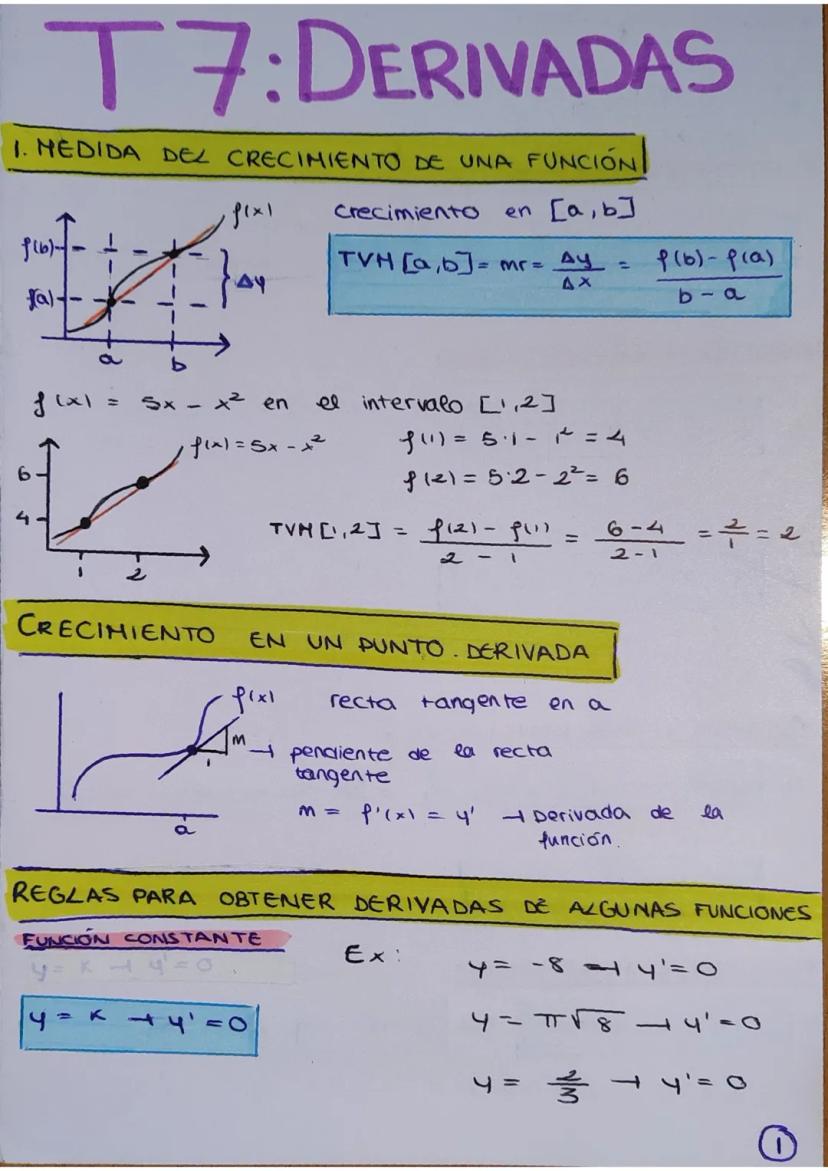 T7: DERIVADAS
1. MEDIDA DEL CRECIMIENTO DE UNA FUNCIÓN
f(x)
f(b)
f(a)
Δy
a
b
crecimiento en [a,b]
TVM [a,b] = mr = Δy/Δx = f(b) - f(a)/b - a
f(x) = 5x - x² en el intervalo [1,2]
f(x) = 5x - x²
6
4
1
2
f(1) = 5·1 - 1² = 4
f(2) = 5·2 - 2² = 6
TVM [1,2] = f(2) - f(1)/2 - 1 = 6 - 4/2 - 1 = 2/1 = 2
CRECIMIENTO EN UN PUNTO. DERIVADA
f(x)
m
1
a
recta tangente en a
→ pendiente de la recta
tangente
m = f'(x) = y' → Derivada de la
función.
REGLAS PARA OBTENER DERIVADAS DE ALGUNAS FUNCIONES
FUNCIÓN CONSTANTE
y = k → y' = 0.
y = k → y' = 0
Ex:
y = -8 → y' = 0
y = π√8 → y' = 0
y = 2/3 → y' = 0
1